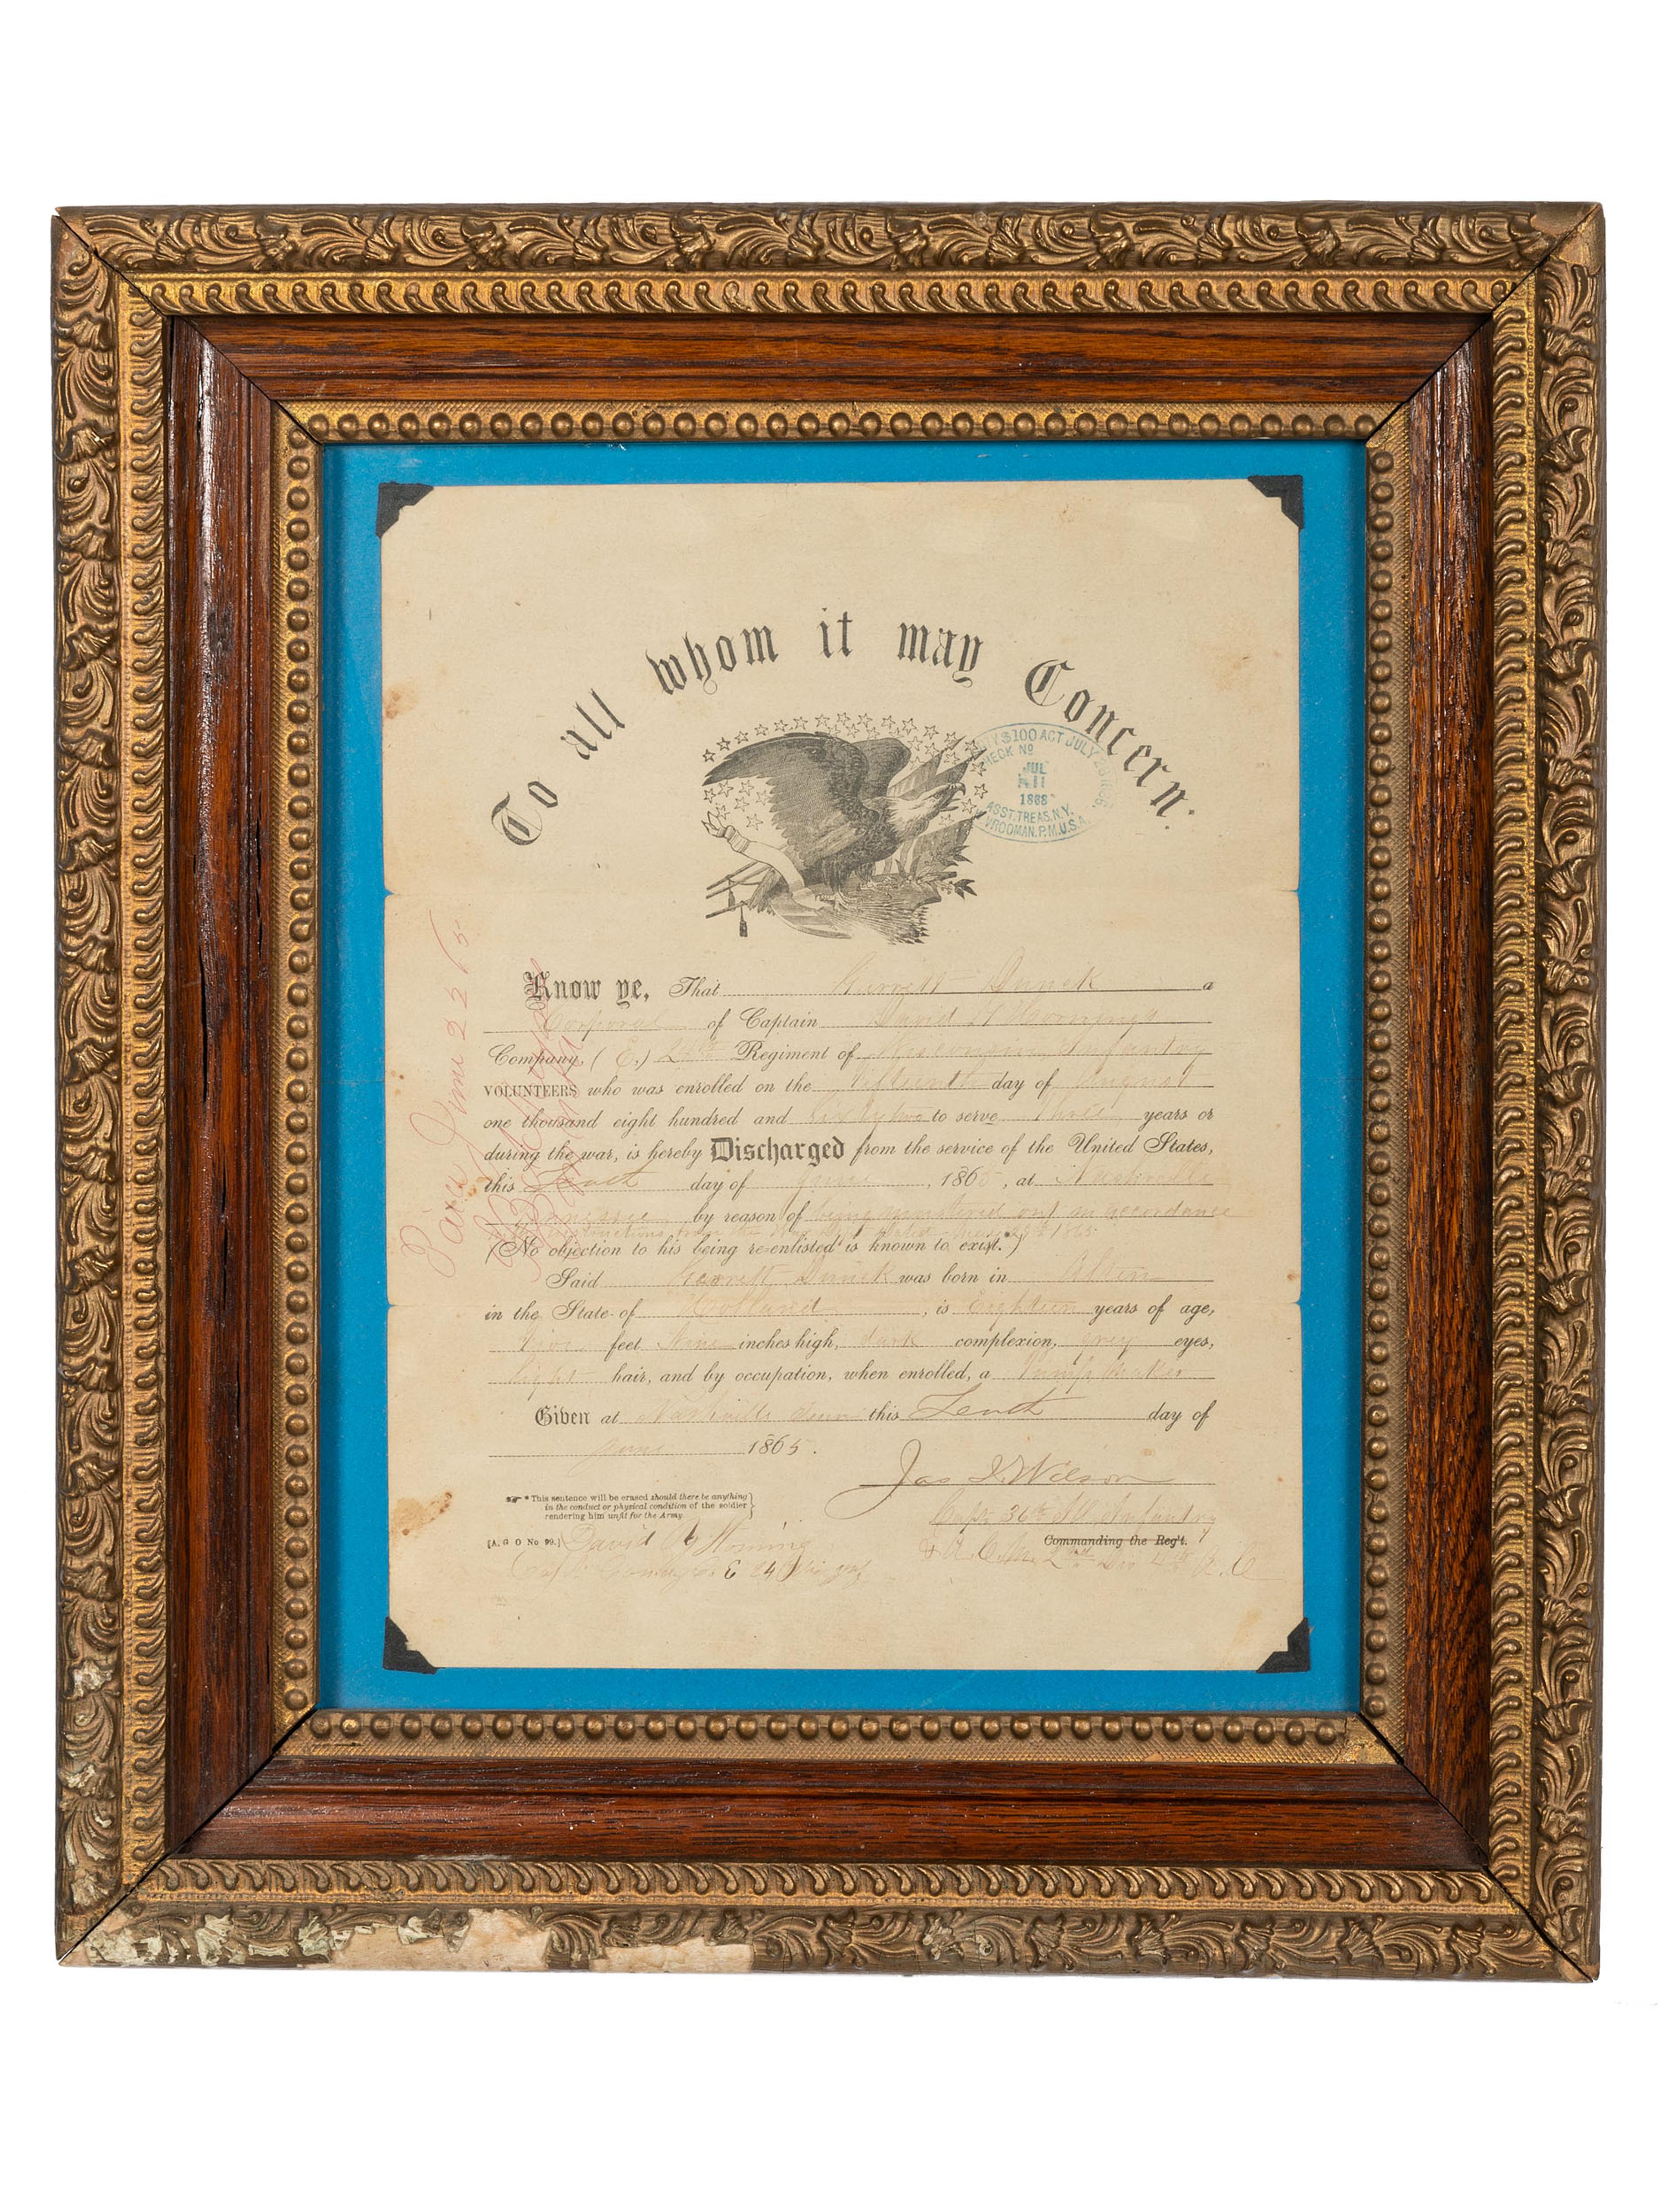 To all whom it may Concern:
$100 ACT JULY 28 1866,
CHECK No
JUL
11
1868
ASST. TREAS. N.Y.
VROOMAN. P.M.U.S.A.
Know ye, That Garrett Dunck a
Corporal of Captain David
Company, (E,) 24th Regiment of Infantry
VOLUNTEERS who was enrolled on the fifteenth day of August
one thousand eight hundred and Sixty two to serve Three years or
during the war, is hereby Discharged from the service of the United States,
this Tenth day of June, 1865, at Nashville
Tennessee by reason of being mustered out in accordance
(No objection to his being re-enlisted is known to exist.*)
Said Garrett Dunck was born in
in the State of Holland, is Eighteen years of age,
Five feet Nine inches high, dark complexion, grey eyes,
light hair, and by occupation, when enrolled, a Pump Maker
Given at Nashville Tenn this Tenth day of
June 1865.
Jas I. Wilson
Capt 36th Infantry
Commanding the Reg't.
* This sentence will be erased should there be anything
in the conduct or physical condition of the soldier
rendering him unfit for the Army.
[A. G. O. No 99.]
David
Co E 24
Paid June 22 65